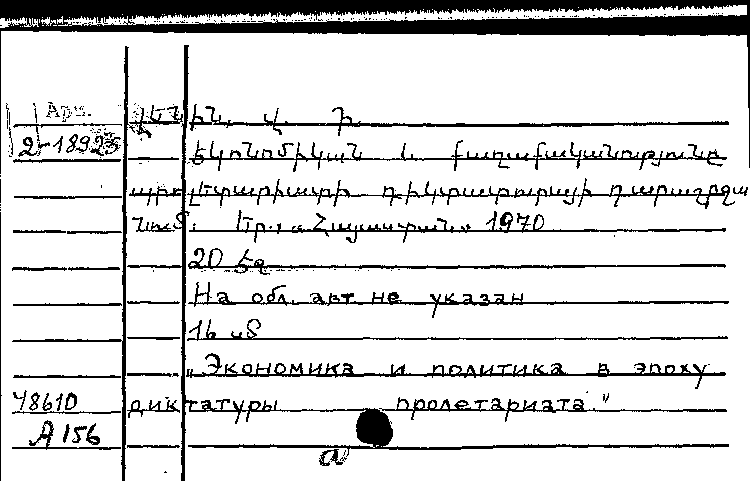 Арм. Լենին. Վ. Ի.
2-18925 Էկոնոմիկան և քաղաքականությունը
պրոլետարիատի դիկտատուրայի դարաշրջա
նում: Եր., «Հայաստան» 1970
20 էջ
На обл. авт не указан
16 սմ
"Экономика и политика в эпоху
48610 диктатуры пролетариата."
A 156
a